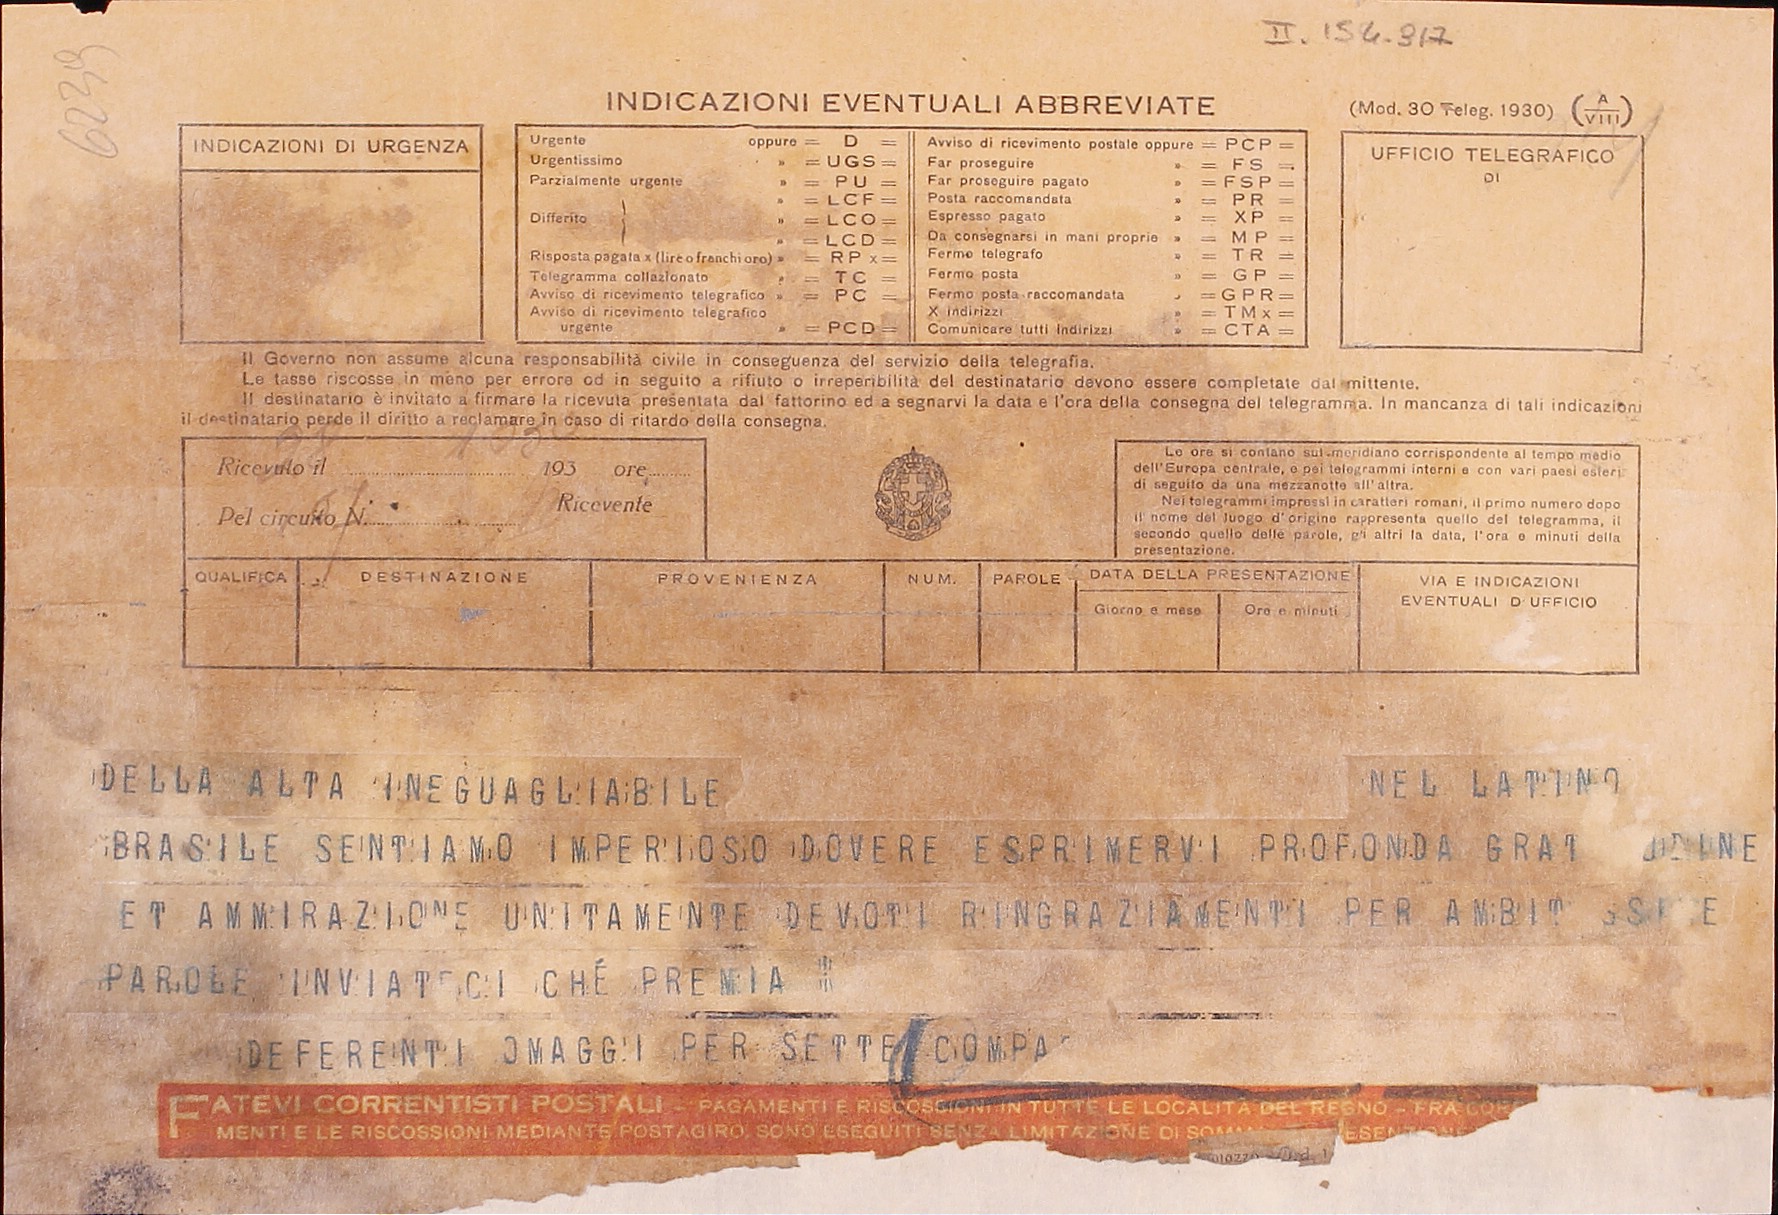 II. 154.317
6229
INDICAZIONI EVENTUALI ABBREVIATE
(Mod. 30 Teleg. 1930) (A/VIII)
INDICAZIONI DI URGENZA
Urgente oppure = D =
Urgentissimo » = UGS =
Parzialmente urgente » = PU =
» = LCF =
Differito » = LCO =
» = LCD =
Risposta pagata x (lire o franchi oro) » = RP x =
Telegramma collazionato » = TC =
Avviso di ricevimento telegrafico » = PC =
Avviso di ricevimento telegrafico
urgente » = PCD =
Avviso di ricevimento postale oppure = PCP =
Far proseguire » = FS =
Far proseguire pagato » = FSP =
Posta raccomandata » = PR =
Espresso pagato » = XP =
Da consegnarsi in mani proprie » = MP =
Fermo telegrafo » = TR =
Fermo posta » = GP =
Fermo posta raccomandata » = GPR =
X indirizzi » = TMx =
Comunicare tutti indirizzi » = CTA =
UFFICIO TELEGRAFICO
DI
Il Governo non assume alcuna responsabilità civile in conseguenza del servizio della telegrafia.
Le tasse riscosse in meno per errore od in seguito a rifiuto o irreperibilità del destinatario devono essere completate dal mittente.
Il destinatario è invitato a firmare la ricevuta presentata dal fattorino ed a segnarvi la data e l'ora della consegna del telegramma. In mancanza di tali indicazioni
il destinatario perde il diritto a reclamare in caso di ritardo della consegna.
Ricevuto il 193 ore
Pel circuito N. Ricevente
Le ore si contano sul meridiano corrispondente al tempo medio
dell'Europa centrale, e pei telegrammi interni e con vari paesi esteri
di seguito da una mezzanotte all'altra.
Nei telegrammi impressi in caratteri romani, il primo numero dopo
il nome del luogo d'origine rappresenta quello del telegramma, il
secondo quello delle parole, gli altri la data, l'ora e minuti della
presentazione.
QUALIFICA DESTINAZIONE PROVENIENZA NUM. PAROLE DATA DELLA PRESENTAZIONE VIA E INDICAZIONI
EVENTUALI D'UFFICIO
Giorno e mese Ore e minuti
DELLA ALTA INEGUAGLIABILE NEL LATINO
BRASILE SENTIAMO IMPERIOSO DOVERE ESPRIMERVI PROFONDA GRAT UDINE
ET AMMIRAZIONE UNITAMENTE DEVOTI RINGRAZIAMENTI PER AMBIT SSI E
PAROLE INVIATECI CHÉ PREMIA
DEFERENTI OMAGGI PER SETTE COMPA
FATEVI CORRENTISTI POSTALI - PAGAMENTI E RISCOSSIONI IN TUTTE LE LOCALITÀ DEL REGNO - FRA COR
MENTI E LE RISCOSSIONI MEDIANTE POSTAGIRO, SONO ESEGUITI SENZA LIMITAZIONE DI SOMM ESENTI